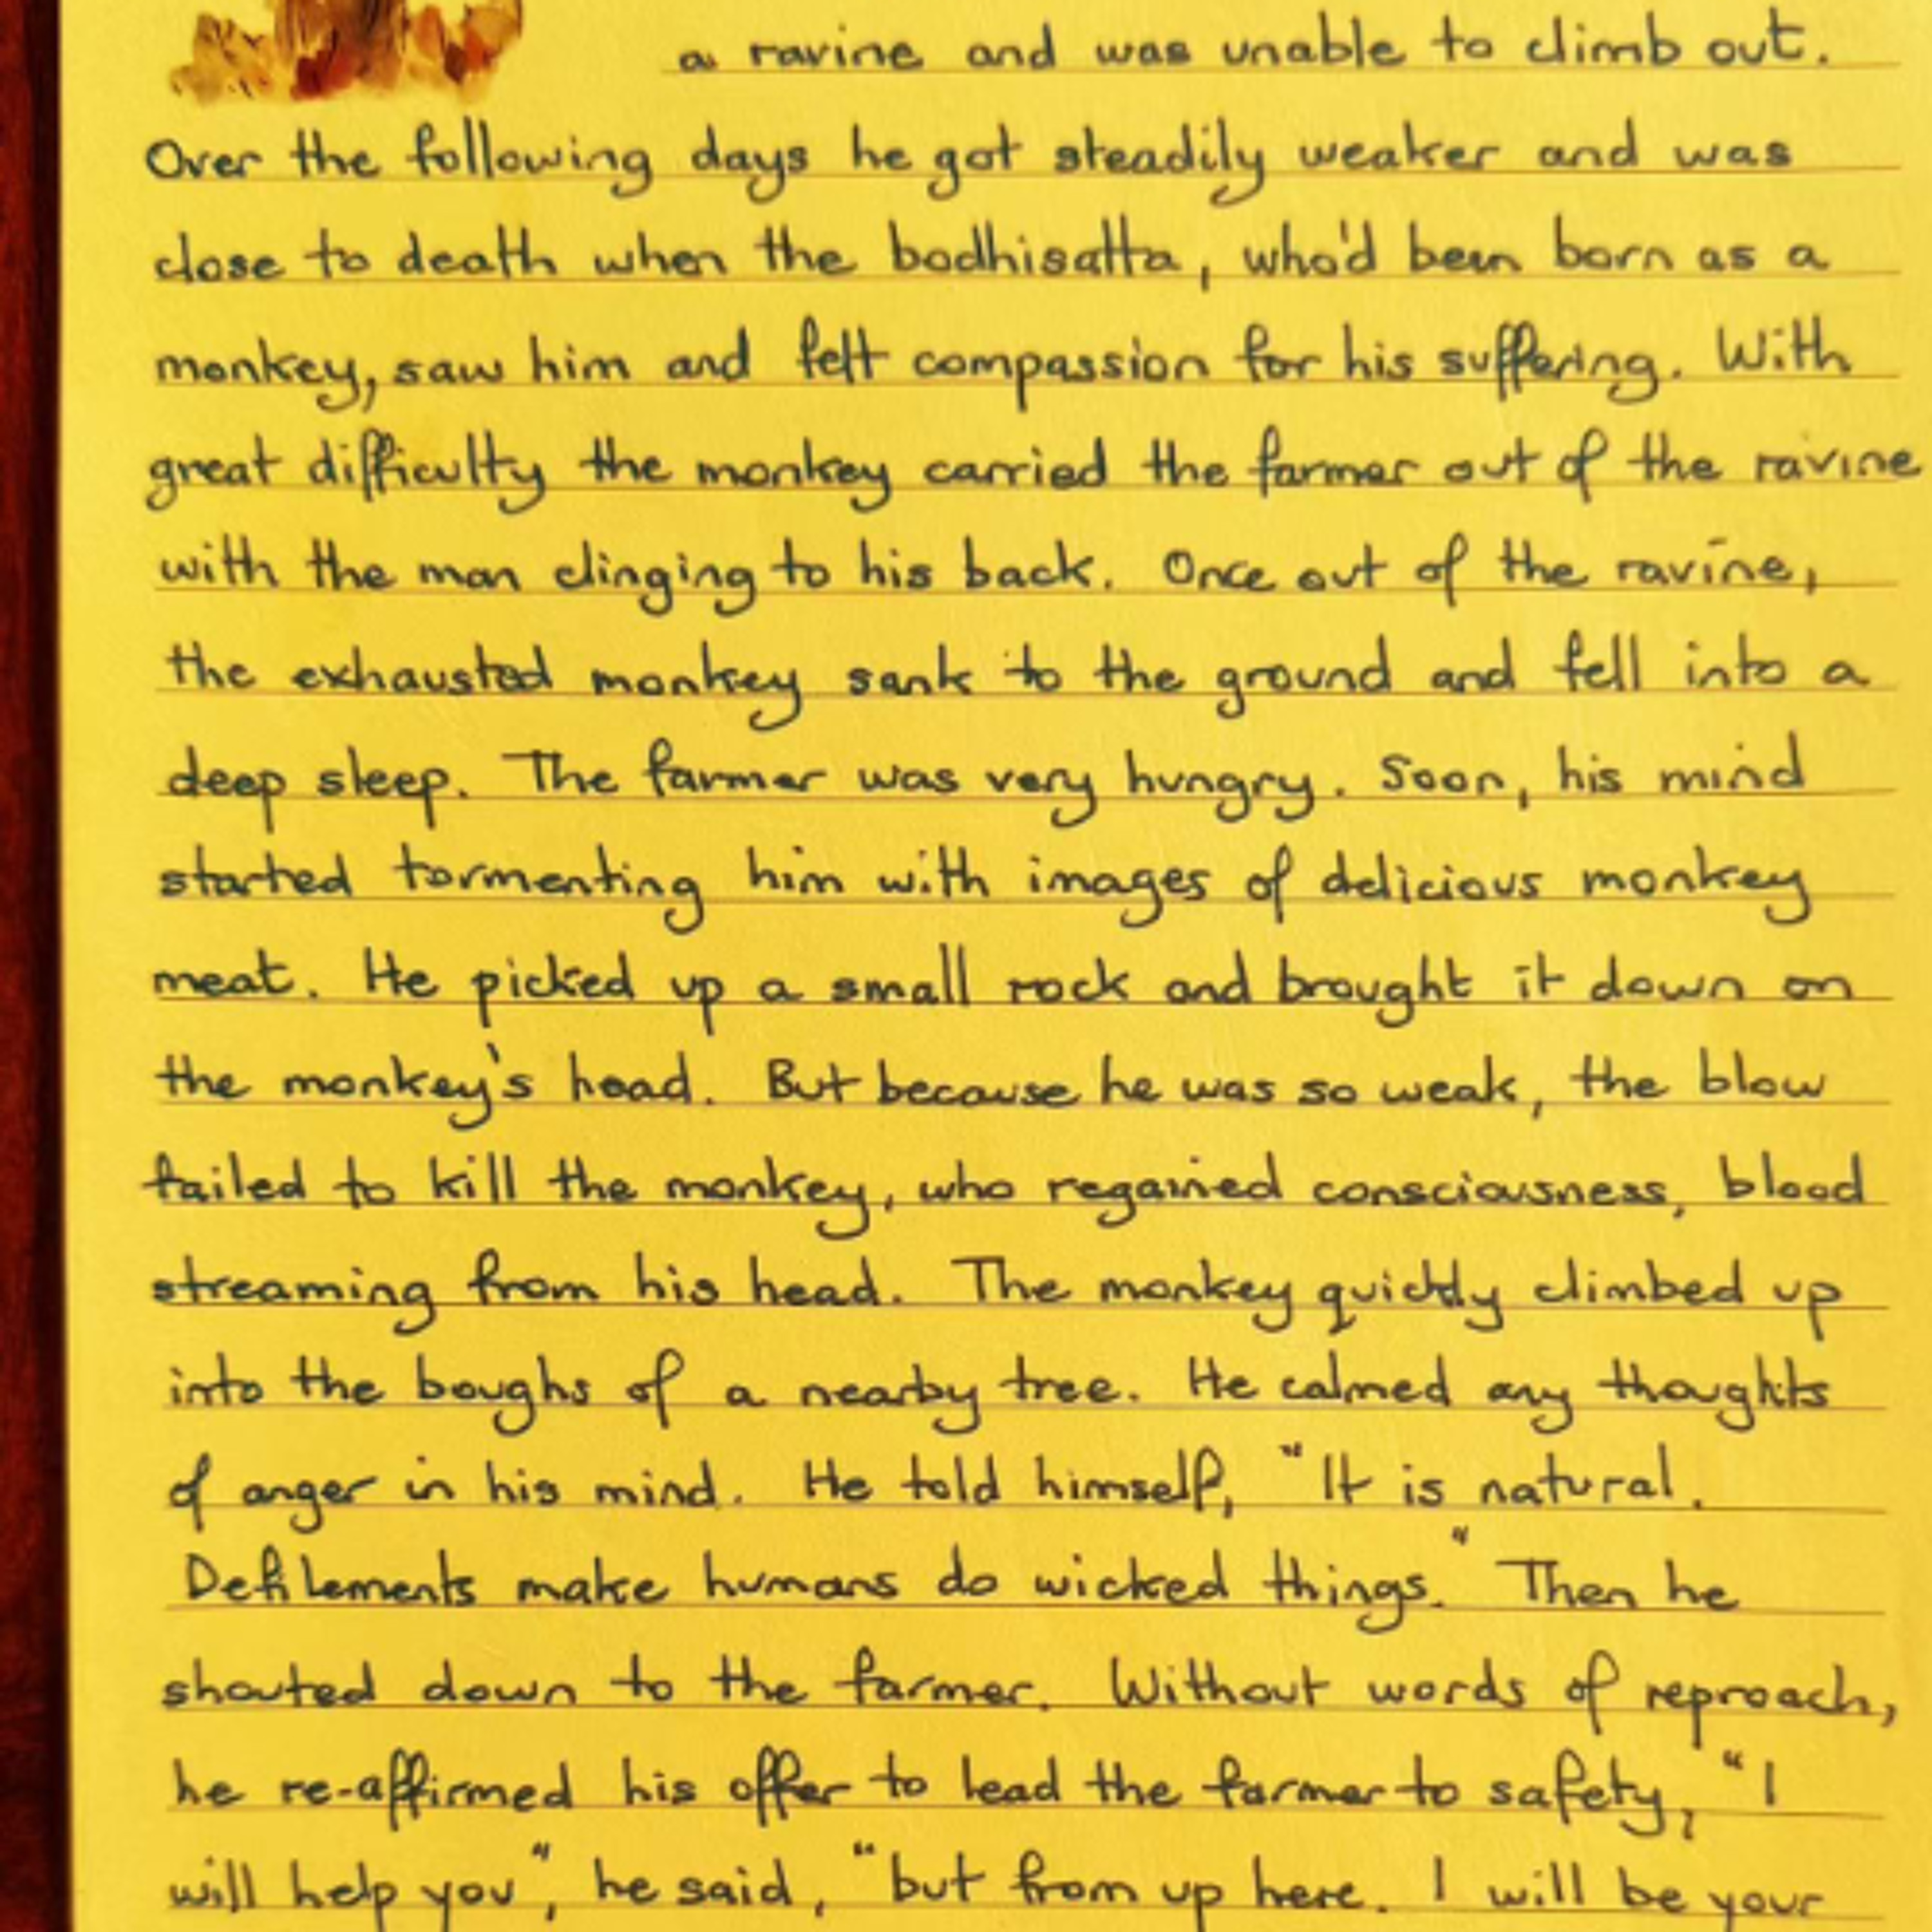 a ravine and was unable to climb out.
Over the following days he got steadily weaker and was
close to death when the bodhisatta, who'd been born as a
monkey, saw him and felt compassion for his suffering. With
great difficulty the monkey carried the farmer out of the ravine
with the man clinging to his back. Once out of the ravine,
the exhausted monkey sank to the ground and fell into a
deep sleep. The farmer was very hungry. Soon, his mind
started tormenting him with images of delicious monkey
meat. He picked up a small rock and brought it down on
the monkey's head. But because he was so weak, the blow
failed to kill the monkey, who regained consciousness, blood
streaming from his head. The monkey quickly climbed up
into the boughs of a nearby tree. He calmed any thoughts
of anger in his mind. He told himself, "It is natural.
Defilements make humans do wicked things." Then he
shouted down to the farmer. Without words of reproach,
he re-affirmed his offer to lead the farmer to safety, "I
will help you", he said, "but from up here. I will be your